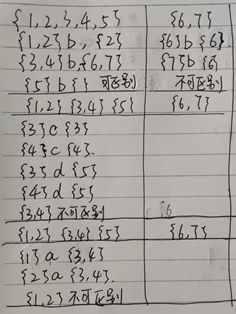 {1,2,3,4,5} {6,7}
{1,2}b, {2} {6}b{6}.
{3,4}b,{6,7} {7}b{6}
{5}b{} 可区别 不可区别
{1,2} {3,4} {5} {6,7}
{3}c{3}
{4}c{4}.
{3}d{5}
{4}d{5}
{3,4}不可区别 {6
{1,2} {3,4} {5} {6,7}
{1}a{3,4}
{2}a{3,4}.
{1,2}不可区别